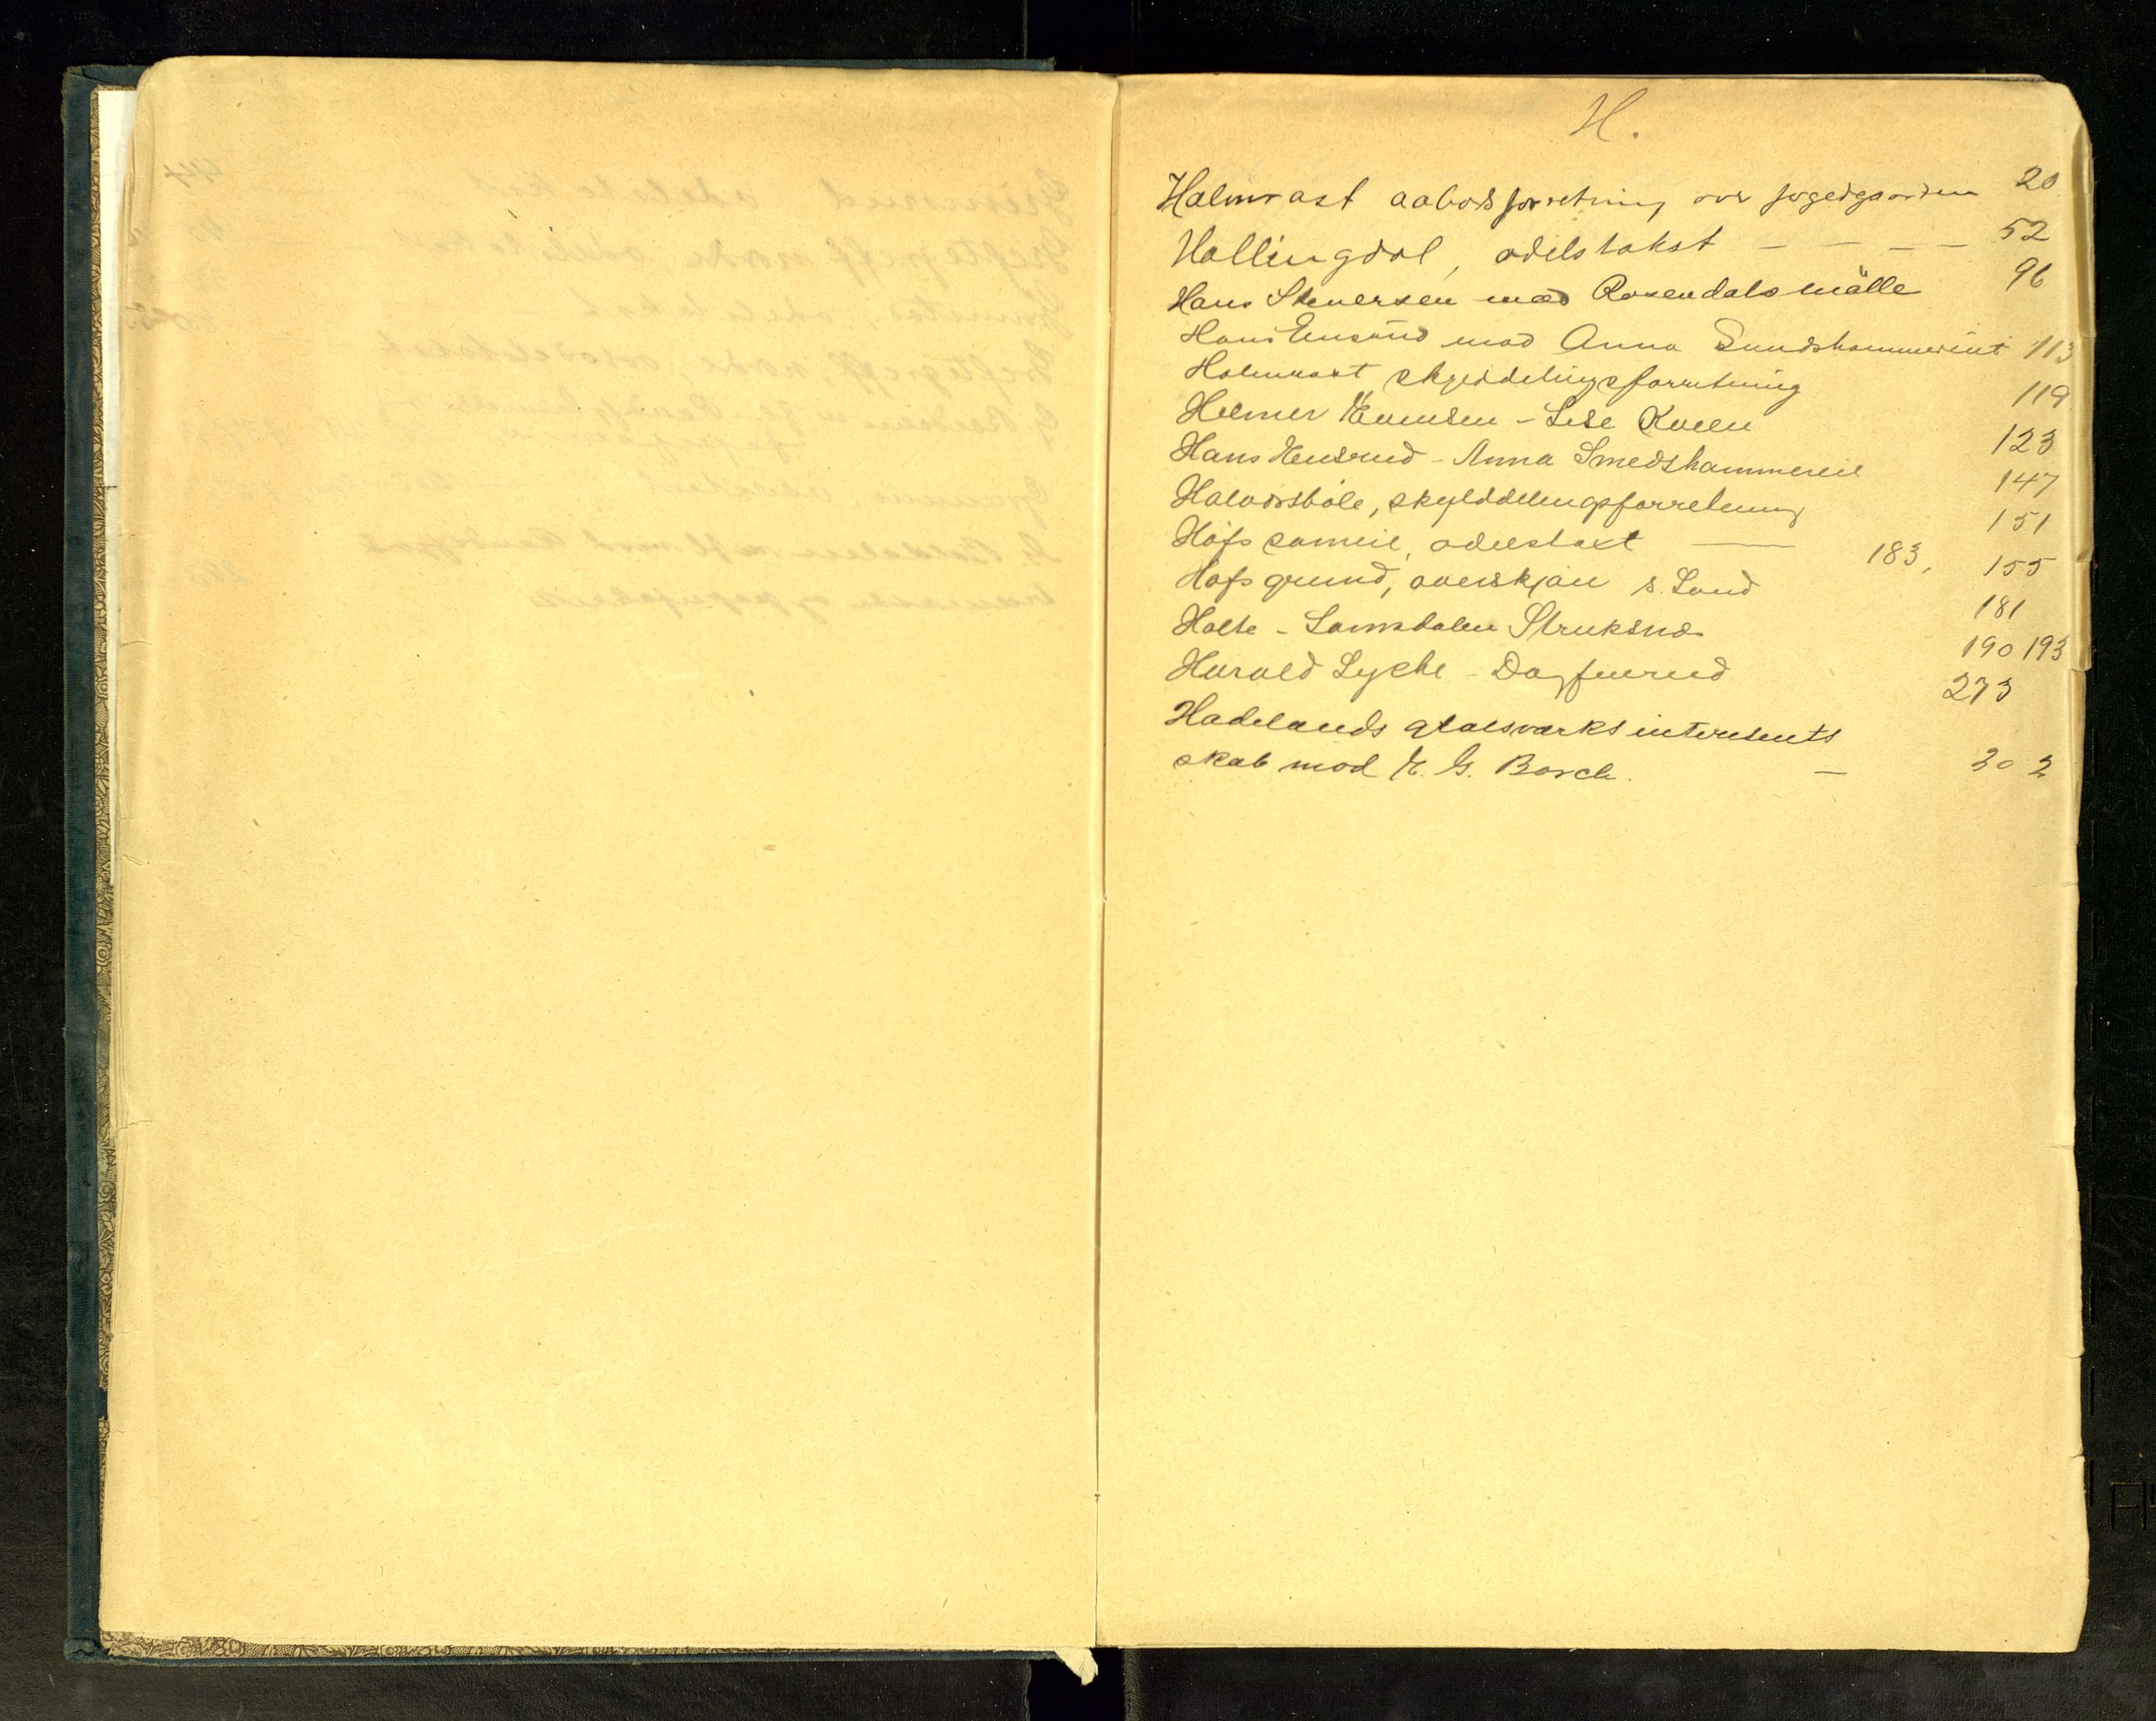 H.
Halmrast aabodsforretning over fogedgaarden 20
Hallingdal, odelstakst — — — — 52
Hans Stenersen mod Rosendals mölle 96
Hans Ensrud mod Anna Smedshammereiet 113
Halmrast skylddelingsforretning 119
Helmer Evensen - Lise Roeen 123
Hans Hensrud - Anna Smedshammereie 147
Halvorsböle, skylddelingsforretning 151
Hofs sameie, odelstaxt — 183, 155
Hofs grund, overskjön s. Land 181
Holte - Lomsdalen Struksnæs 190 193
Harald Lyche - Dagfinrud 273
Hadelands glasværks interesents
skab mod H. G. Borch. — 302